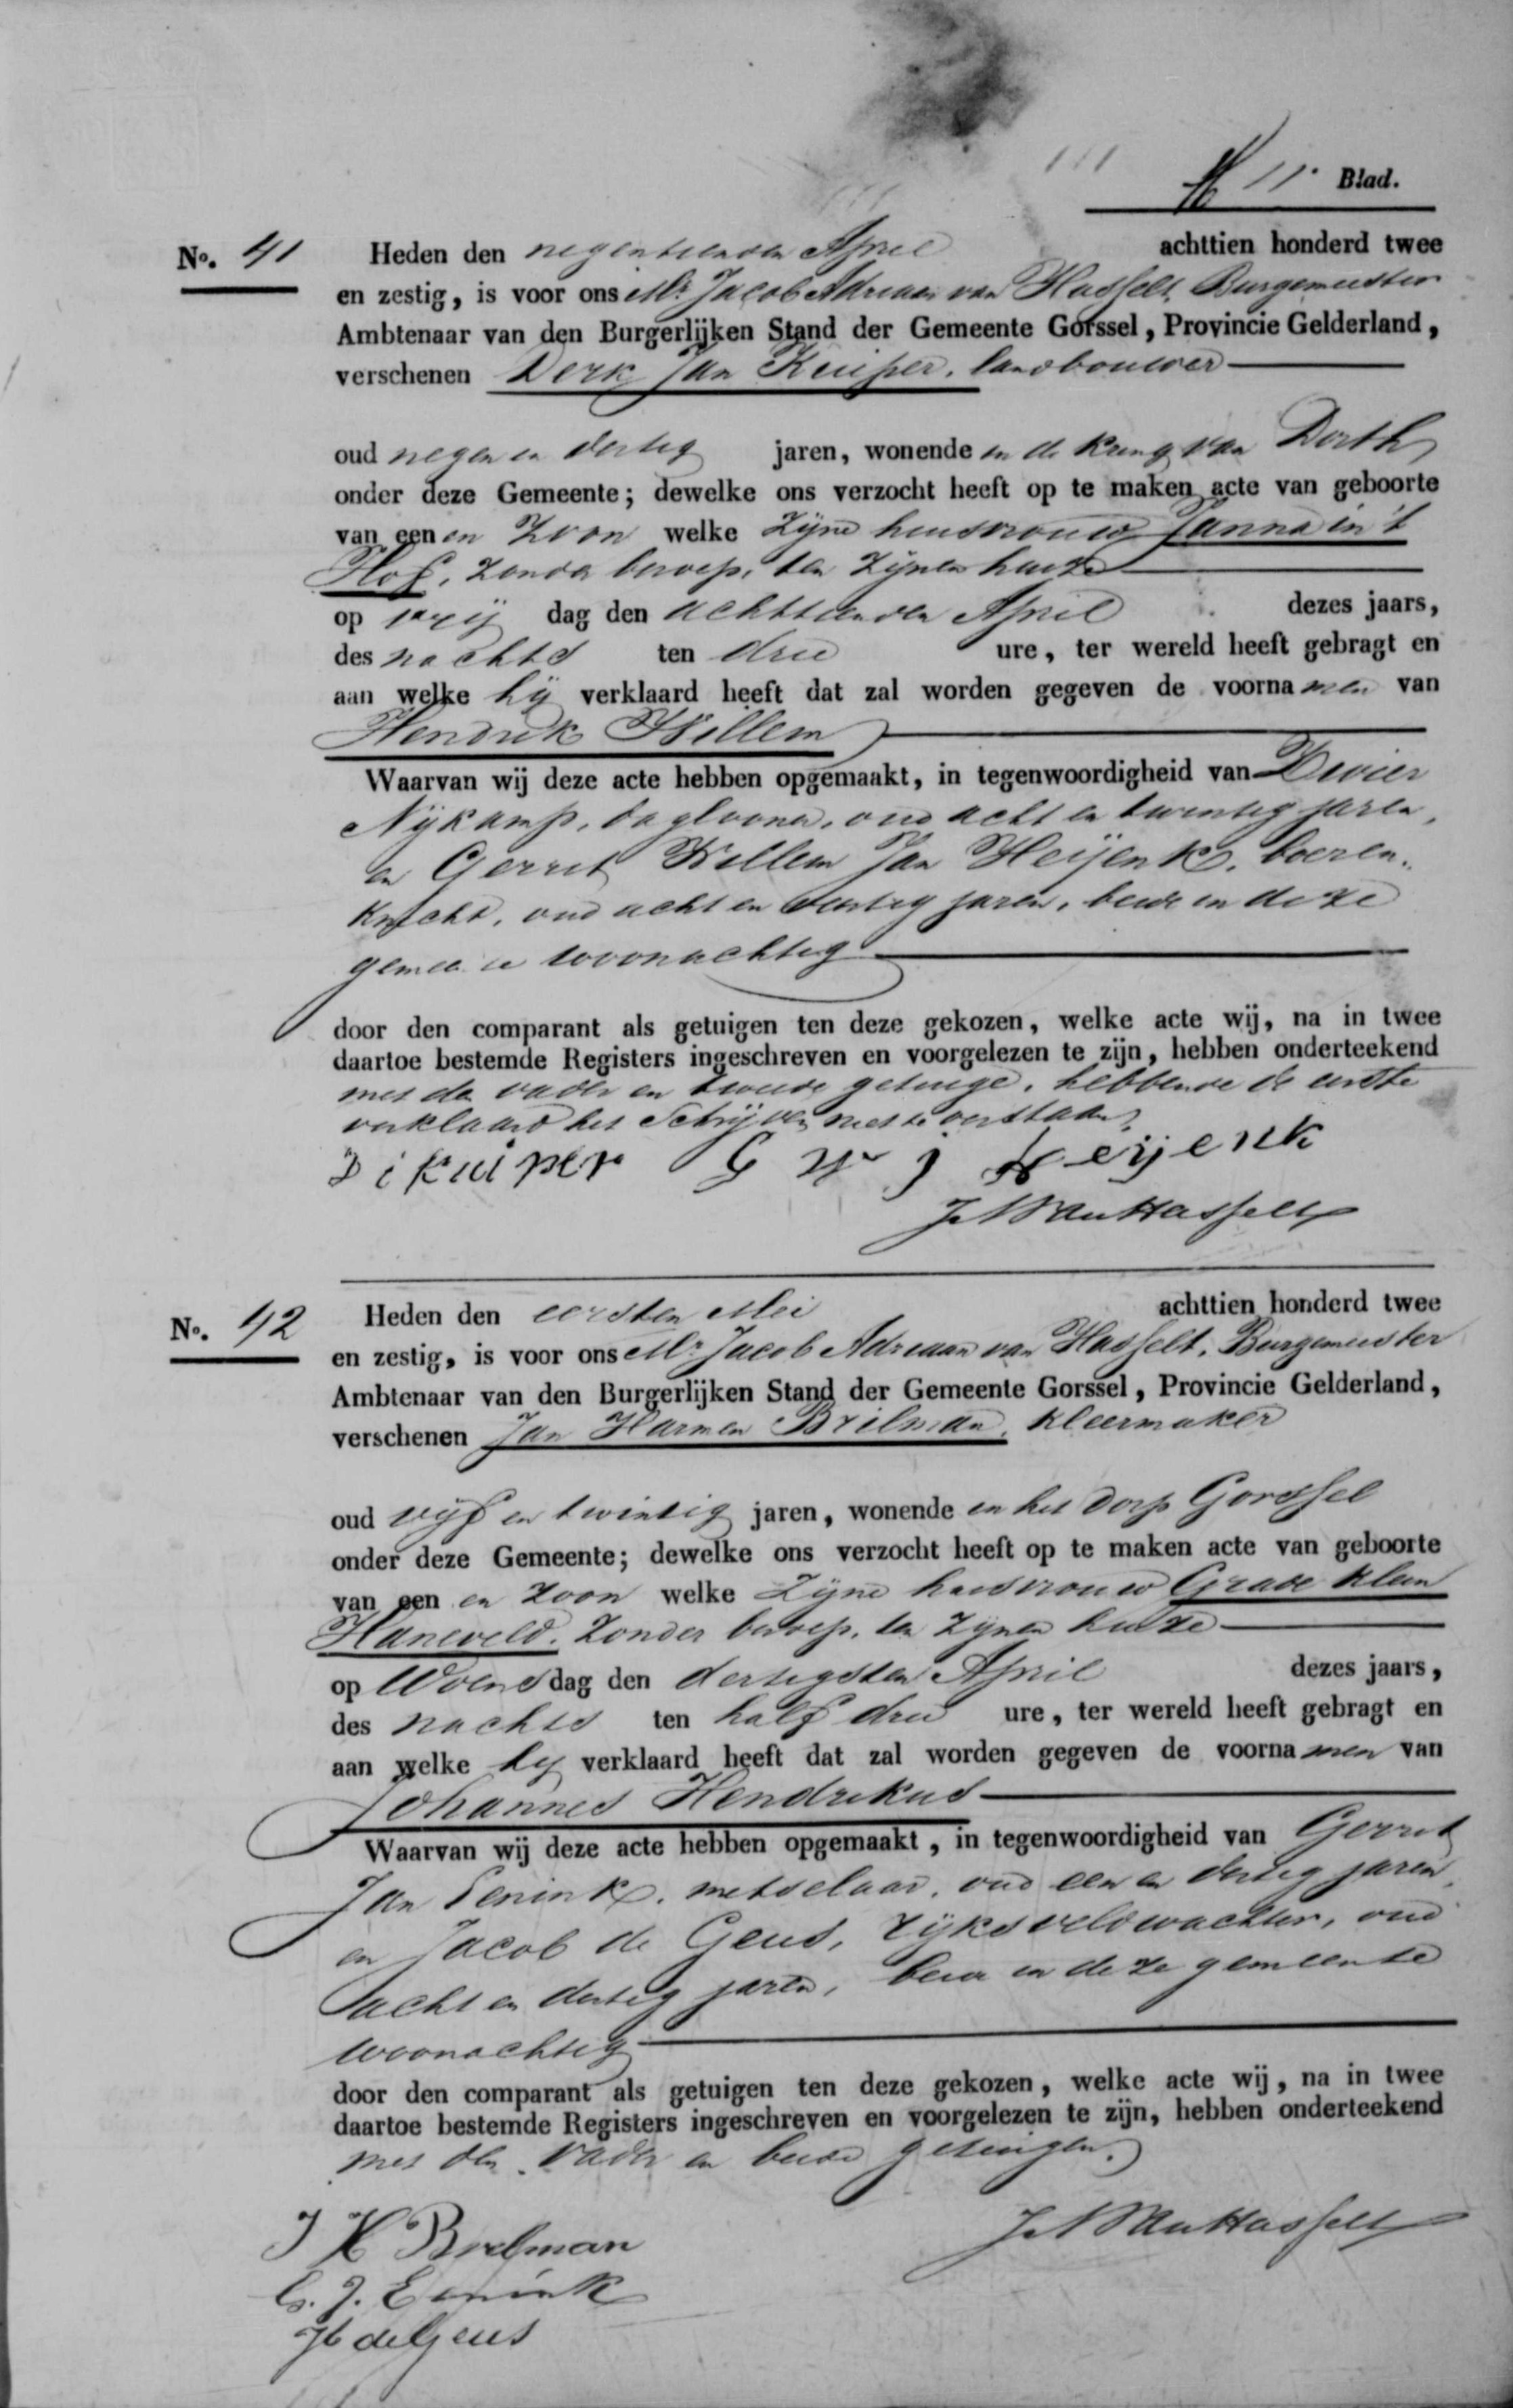 11. Blad.
No. 41 Heden den negentienden April achttien honderd twee
en zestig, is voor ons Mr. Jacob Adriaan van Hasselt, Burgemeester
Ambtenaar van den Burgerlijken Stand der Gemeente Gorssel, Provincie Gelderland,
verschenen Derk Jan Kuiper, landbouwer
oud negen en dertig jaren, wonende in de kring van Dorth
onder deze Gemeente; dewelke ons verzocht heeft op te maken acte van geboorte
van een en zoon welke zijne huisvrouw Janna in 't
Hof, zonder beroep, ten zijnen huize
op vrij dag den achttienden April dezes jaars,
des nachts ten drie ure, ter wereld heeft gebragt en
aan welke hij verklaard heeft dat zal worden gegeven de voorna men van
Hendrik Willem
Waarvan wij deze acte hebben opgemaakt, in tegenwoordigheid van
Nijkamp, daglooner, oud acht en twintig jaren,
en Gerrit Willem Jan Heijenk, boeren-
knecht, oud acht en dertig jaren, beide in deze
gemeente woonachtig
door den comparant als getuigen ten deze gekozen, welke acte wij, na in twee
daartoe bestemde Registers ingeschreven en voorgelezen te zijn, hebben onderteekend
met den vader en tweede getuige, hebbende de eerste
verklaard het schrijven niet te verstaan.
D j kuiper G W j Heijenk
JA van Hasselt
No. 42 Heden den eersten Mei achttien honderd twee
en zestig, is voor ons Mr. Jacob Adriaan van Hasselt, Burgemeester
Ambtenaar van den Burgerlijken Stand der Gemeente Gorssel, Provincie Gelderland,
verschenen Jan Harmen Brilman, kleermaker
oud vijf en twintig jaren, wonende in het dorp Gorssel
onder deze Gemeente; dewelke ons verzocht heeft op te maken acte van geboorte
van een en zoon welke zijne huisvrouw Grade Klein
Haneveld, zonder beroep, ten zijnen huize
op Woens dag den dertigsten April dezes jaars,
des nachts ten half drie ure, ter wereld heeft gebragt en
aan welke hij verklaard heeft dat zal worden gegeven de voorna men van
Johannes Hendrikus
Waarvan wij deze acte hebben opgemaakt, in tegenwoordigheid van Gerrit
Jan Eenink, metselaar, oud een en dertig jaren,
en Jacob de Geus, rijksveldwachter, oud
acht en dertig jaren, beide in deze gemeente
woonachtig
door den comparant als getuigen ten deze gekozen, welke acte wij, na in twee
daartoe bestemde Registers ingeschreven en voorgelezen te zijn, hebben onderteekend
met den vader en beide getuigen.
J H Brilman JA van Hasselt
G. J. Eenink
Jb de Geus